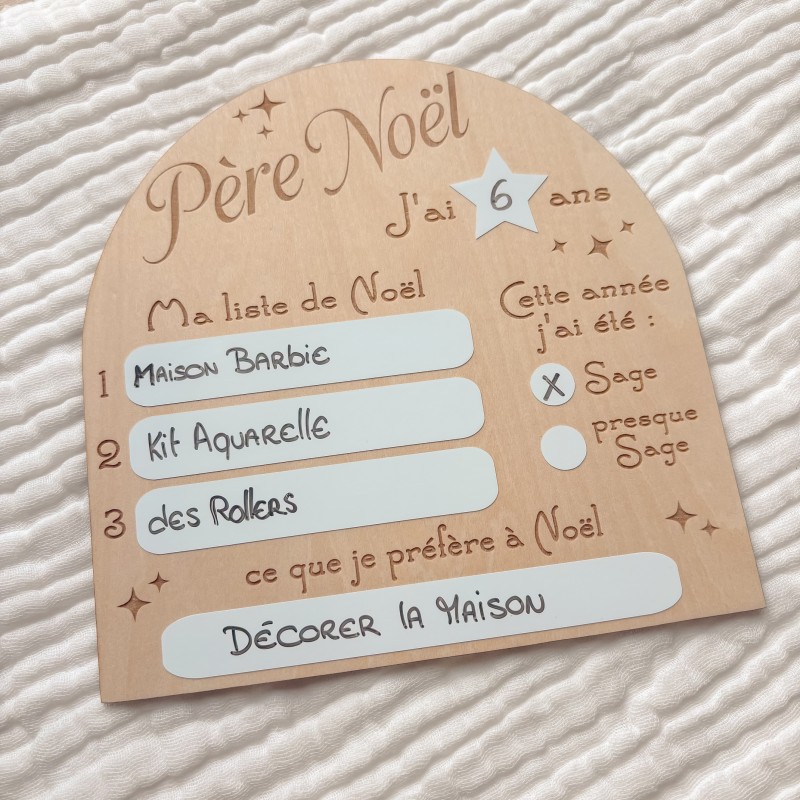 Père Noël
J'ai 6 ans
Ma liste de Noël
1 Maison Barbie
2 Kit Aquarelle
3 des Rollers
Cette année
j'ai été :
X Sage
presque
Sage
ce que je préfère à Noël
DÉCORER la MAISON